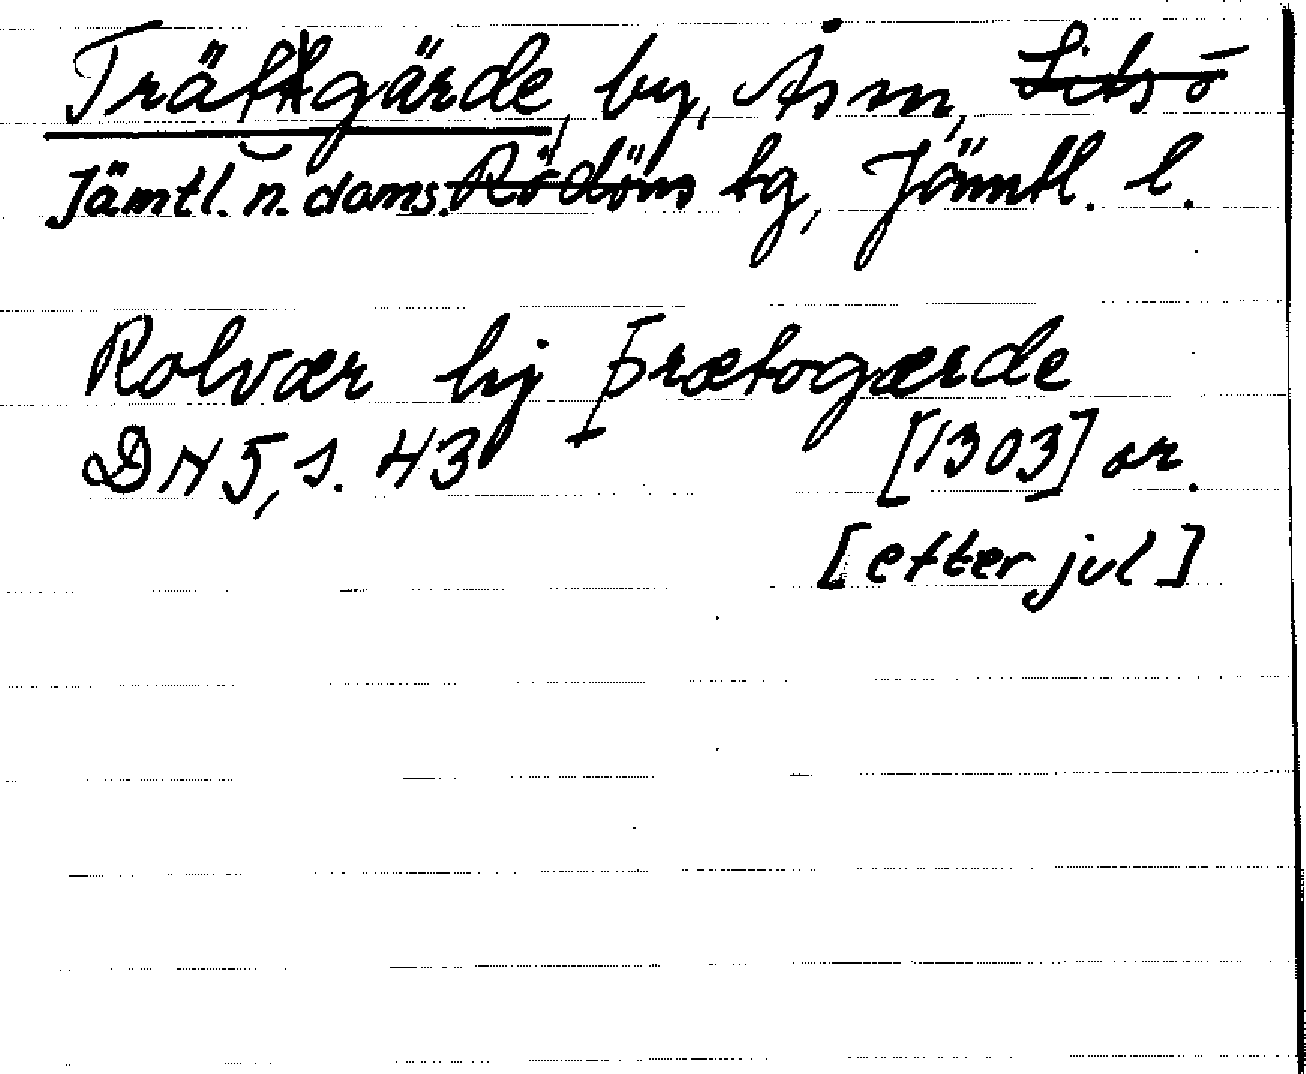 Träfgärde, by, Ås sn, Lits o
Jämtl. n. doms. Rödöns tg, Jämtl. l.
Rolvær hij Þrætogærde
DN 5, s. 43 [1303] or.
[efter jul]